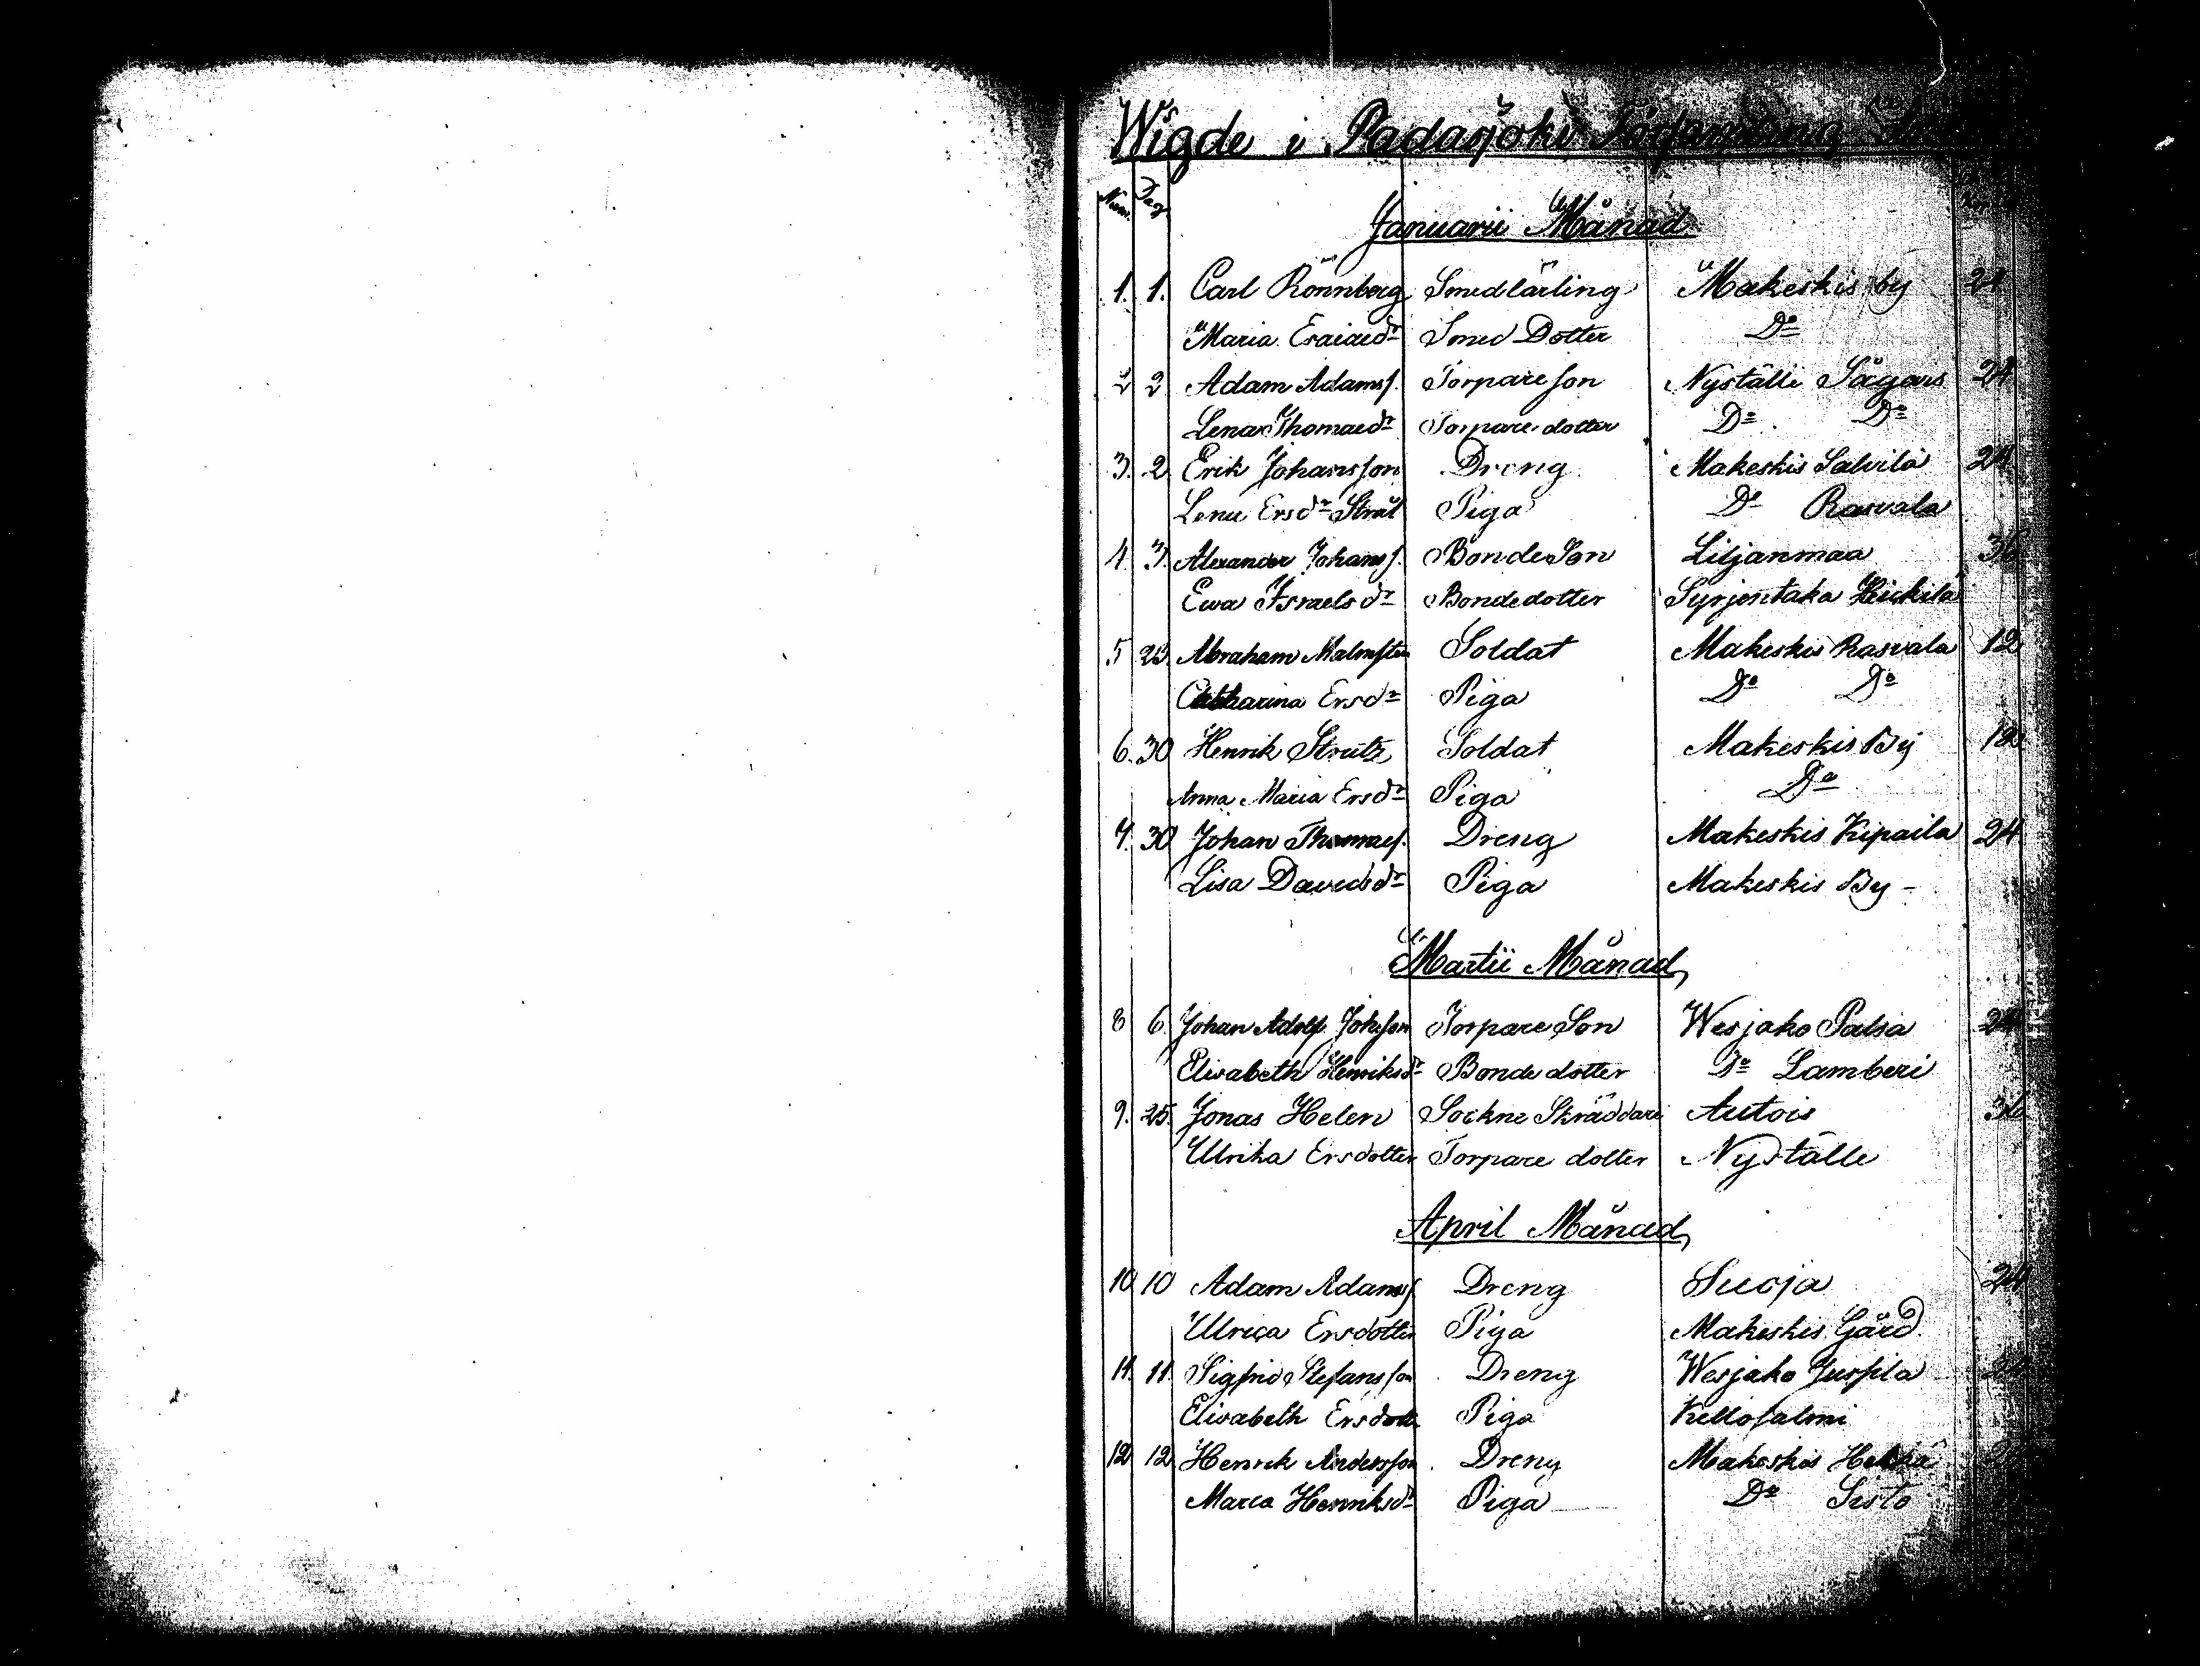 Wigde i Padasjoki Församling
Num. Dag
Januarii Månad
1. 1. Carl Rönnberg Smedlärling Makeskis by 24
Maria Esaiaedr Smed Dotter Do
2 2 Adam Adamsf. Torpare son Nyställe Sägars 24
Lena Thomaedr Torpare dotter Do Do
3. 2. Erik Johansson Dreng Makeskis Salvila 24
Lena Ersdr Strål Piga Do Rasvala
4. 3. Alexander Johansf. Bonde Son Liljanmaa 36
Ewa Israels dr Bonde dotter Syrjentaka Heickilä
5 23. Abraham Malmsten Soldat Makeskis Rasvala 12
Catharina Ersdr Piga Do Do
6. 30 Henrik Strutz Soldat Makeskis By 12
Anna Maria Ersdr Piga Do
7. 30 Johan Thomaef. Dreng Makeskis Kipaila 24
Lisa Davidsdr Piga Makeskis By -
Martii Månad
8 6. Johan Adolf Johsson Torpare Son Wesjako Palsa 24
Elisabeth Henriksdr Bonde dotter Do Lamberi
9. 25. Jonas Helen Sockne Skräddare Autois 36
Ulrika Ersdotter Torpare dotter Nyställe
April Månad
10 10 Adam Adamsf Dreng Suoja 24
Ulrica Ersdotter Piga Makeskis Gård.
11. 11. Sigfrid Stefansson Dreng Wesjako Juspila
Elisabeth Ersdotter Piga Kellosalmi
12 12 Henrik Andersson Dreng Makeskis
Maria Henriksdr Piga Do Sisto